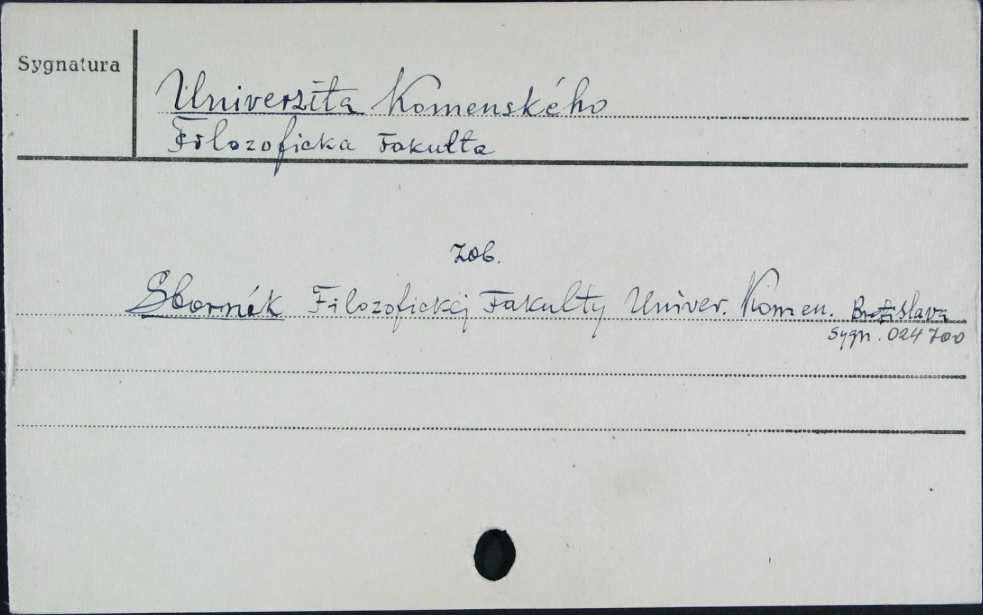 Sygnatura
Univerzita Komenského
Filozoficka Fakulta
zob.
Sborník Filozofickéj Fakulty Univer. Komen. Bratislava
Sygn. 024700